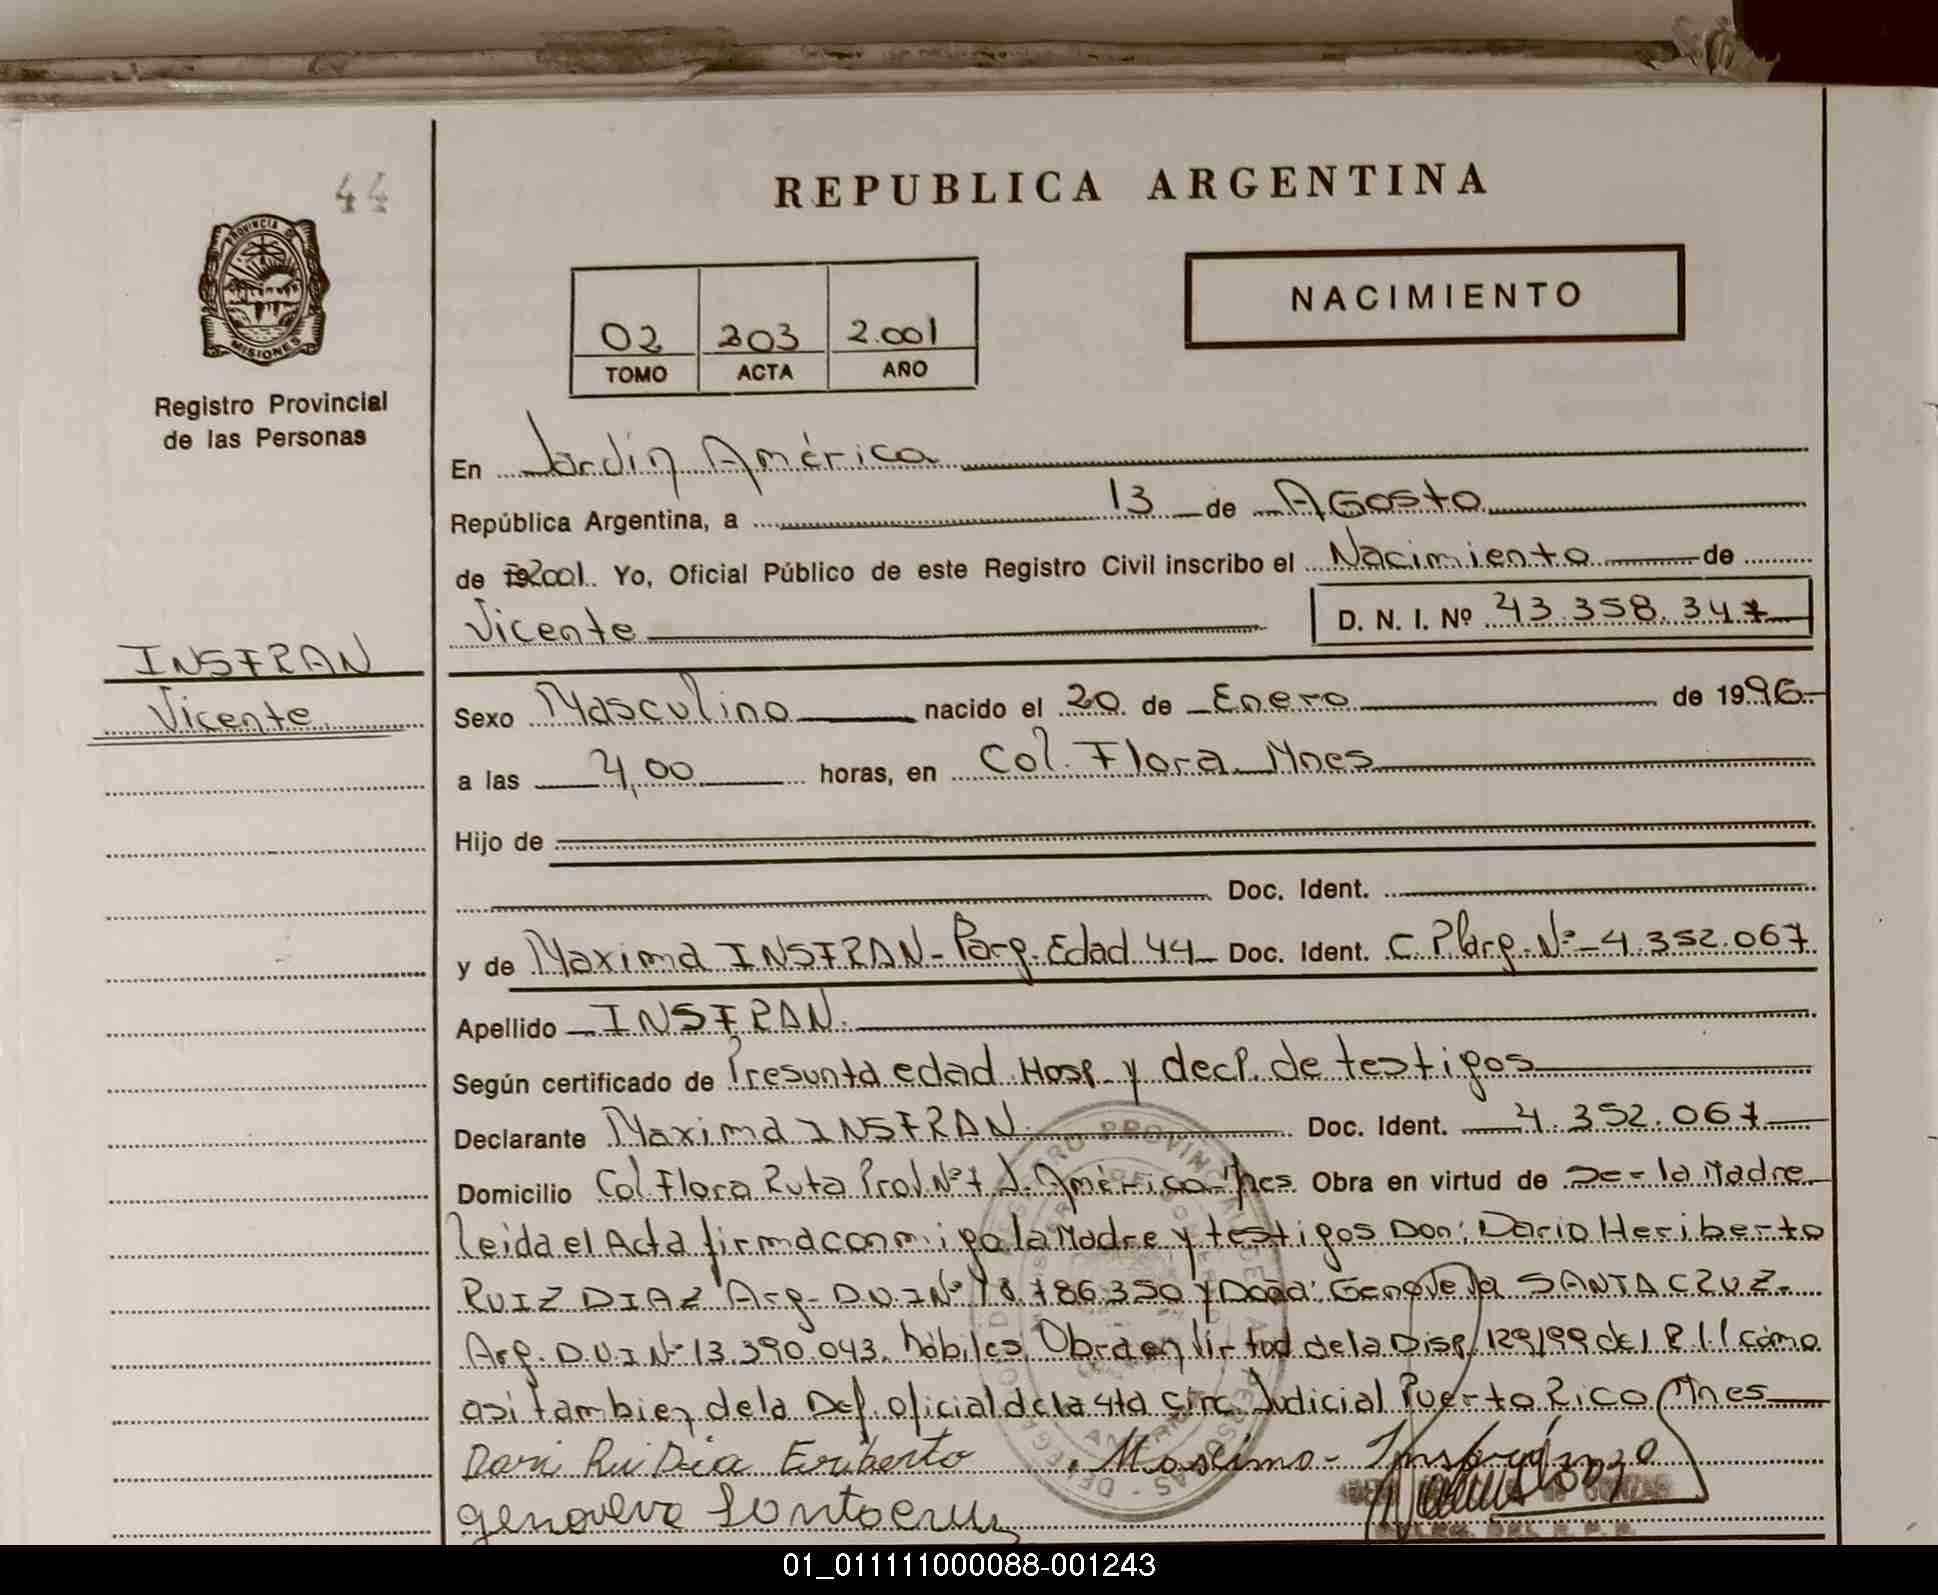 44
REPUBLICA ARGENTINA
PROVINCIA DE
MISIONES
Registro Provincial
de las Personas
NACIMIENTO
02 203 2.001
TOMO ACTA AÑO
En Jardín América
República Argentina, a 13 de Agosto
de 192001. Yo, Oficial Público de este Registro Civil inscribo el Nacimiento de
Vicente D. N. I. Nº 43.358.347
INSFRAN
Vicente
Sexo Masculino nacido el 20 de Enero de 1996
a las 4,00 horas, en Col. Flora Mnes
Hijo de
Doc. Ident.
y de Maxima INSFRAN - Parg. Edad 44 Doc. Ident. C. Parg. Nº 4.352.067
Apellido INSFRAN.
Según certificado de Presunta edad Hosp y decl. de testigos
Declarante Maxima INSFRAN Doc. Ident. 4.352.067
Domicilio Col. Flora Ruta Prov. Nº 7 J. América Mnes Obra en virtud de Ser la Madre
leida el Acta firma conmigo la Madre y testigos Don: Dario Heriberto
RUIZ DIAZ Arg. D.N.I Nº 18.786.350 y Doña: Genoveva SANTA CRUZ
Arg. D.N.I Nº 13.390.043. hábiles. Obra en virtud de la Disp. 129/99 del como
asi tambien de la Def. oficial de la 4ta Circ. Judicial Puerto Rico Mnes
Dari Rui Dia Eriberto Maxima - Insfran
genoveva Santacruz
01_011111000088-001243